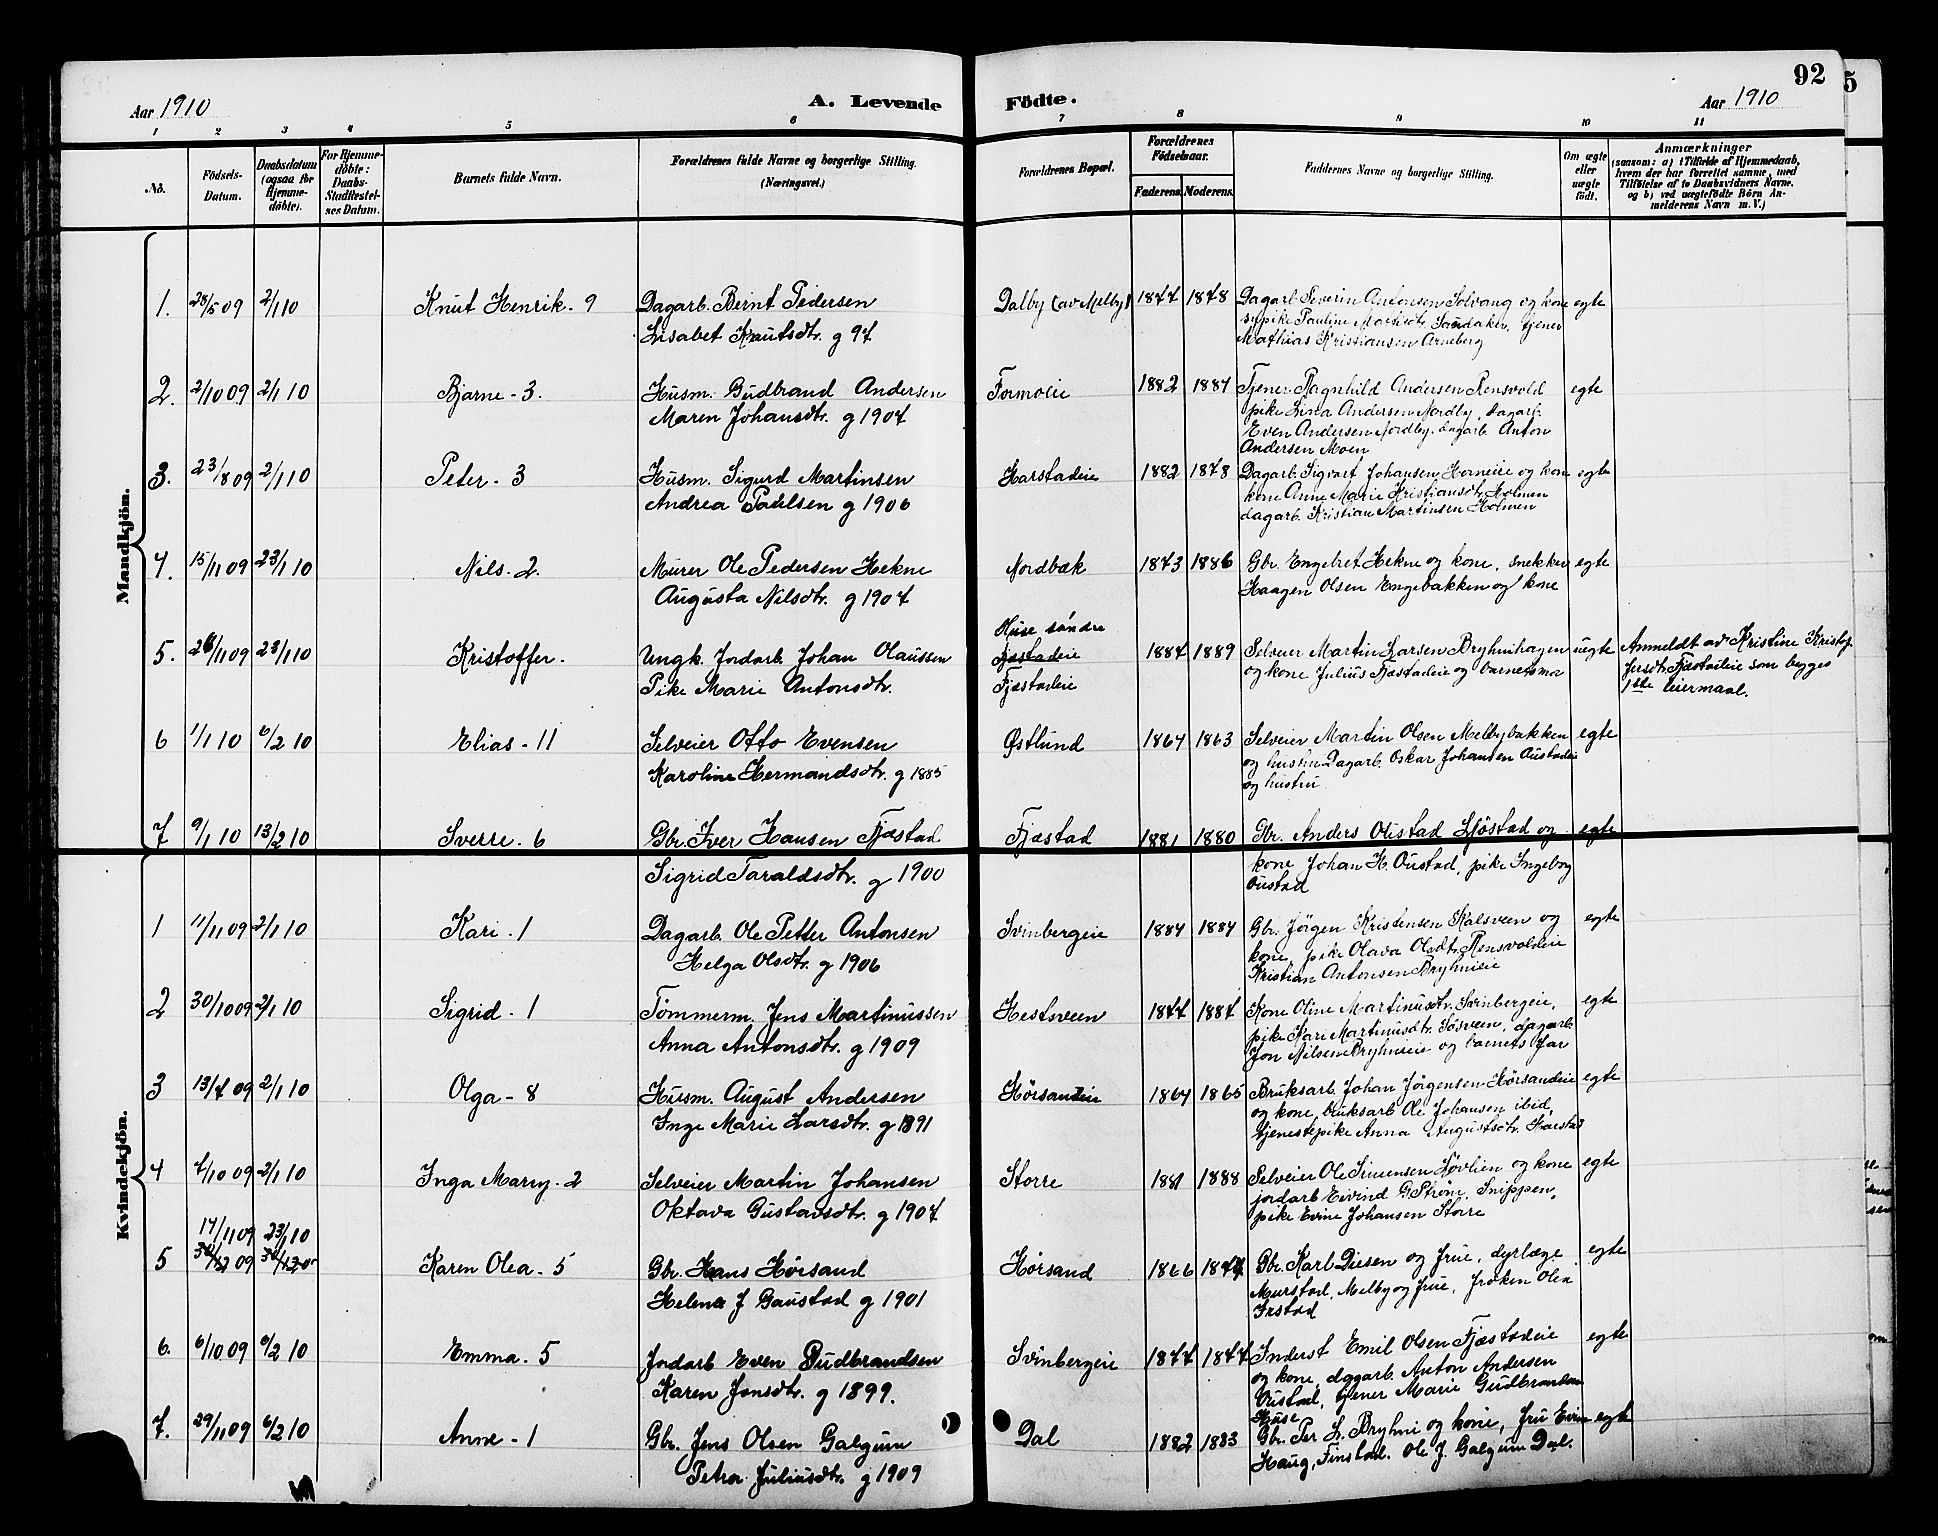 92
5
Aar 1910
A. Levende
Födte.
Aar 1910
1 2 3 4 5 6 7 8 9 10 11
No.
Födsels-Datum.
Daabsdatum (ogsaa for Hjemme-döbte).
For Hjemme-döbte: Daabs-Stadfæstel-ses Datum.
Barnets fulde Navn.
Forældrenes fulde Navne og borgerlige Stilling. (Næringsvei.)
Forældrenes Bopæl.
Forældrenes Födselsaar.
Faderens. Moderens.
Faddernes Navne og borgerlige Stilling.
Om ægte eller uægte födt.
Anmærkninger
(saasom: a) i Tilfælde af Hjemmedaab,
hvem der har forrettet samme, med
Tilföielse af to Daabsvidners Navne,
og b) ved uægtefödte Börn An-
melderens Navn m. V.)
Mandkjön.
1. 28/5 09 2/1 10 Knut Henrik - 9 Dagarb. Bernt Pedersen Dalby (av Melby) 1844 1848 Dagarb. Severin Antonsen Solvang og kone egte
Lisabet Knutsdtr. g 94 sypike Pauline Sandaker, tjener
Mathias Kristiansen Arneberg
2. 2/10 09 2/1 10 Bjarne - 3. Husm. Gudbrand Andersen Formoeie 1882 1884 Tjener Ragnhild Andersen Rensvold egte
Maren Johansdtr. g 1904 pike Lina Andersen Nordby, dagarb.
Even Andersen Nordby. dagarb. Anton
Andersen Moen
3. 23/8 09 2/1 10 Peter - 3 Husm. Sigurd Martinsen Harstadeie 1882 1878 Dagarb. Sigvart Johansen Horneie og kone egte
Andrea Paulsen g 1906 kone Anne Marie Kristiansdtr. Holmen
dagarb. Kristian Martinsen Holmen
4. 15/11 09 23/1 10 Nils - 2. Murer Ole Pedersen Hekne Nordbæk 1873 1886 Gbr. Engebret Hekne og kone, snekker egte
Augusta Nilsdtr. g 1904 Haagen Olsen Engebakken og kone
Huse söndre
5. 26/11 09 23/1 10 Kristoffer. Ungk. Jordarb. Johan Olaussen Fjæstadeie 1884 1889 Selveier Martin Larsen Bryhnihagen uegte Anmeldt av Kristine Kristof
Pike Marie Antonsdtr. Fjæstadeie og kone Julius Fjæstadeie og barnets mor fersdtr. Fjæstadeie som begges
1ste leiermaal.
6 1/1 10 6/2 10 Elias - 11 Selveier Otto Evensen Østlund 1864 1863 Selveier Martin Olsen Melbybakken egte
Karoline Hermandsdtr. g 1885 og hustru Dagarb. Oskar Johansen Austadeie
og hustru
7 9/1 10 13/2 10 Sverre - 6 Gbr. Iver Hansen Fjæstad Fjæstad 1881 1880 Gbr. Anders Olistad og egte
Sigrid Taraldsdtr. g 1900 kone, Johan H. Oustad, pike Ingeborg
Oustad
Kvindekjön.
1 11/11 09 2/1 10 Kari - 1 Dagarb. Ole Petter Antonsen Svinbergeie 1884 1884 Gbr. Jörgen Kristensen Kalsveen og egte
Helga Olsdtr. g 1906 kone, pike Olava Olsdtr. Rensvoldeie
Kristian Antonsen Bryhnieie
2 30/10 09 2/1 10 Sigrid - 1 Tömmerm. Jens Martinussen Hestsveen 1844 1884 Kone Oline Martinusdtr. Svinbergeie, egte
Anna Antonsdtr. g 1909 pike Kari Martinusdtr. Sösveen, dagarb
Jon Nilsen Bryhnieie og barnets far
3 13/7 09 2/1 10 Olga - 8 Husm. August Andersen Hørsandeie 1864 1865 Bruksarb. Johan Jörgensen Hørsandeie egte
Inge Marie Larsdtr. g 1891 og kone, bruksarb Ole Johansen ibid,
tjenestepike Anna Augustsdtr. Harstad
4 7/10 09 2/1 10 Inga Marry - 2 Selveier Martin Johansen Storre 1881 1888 Selveier Ole Simensen Løvlien og kone egte
Oktava Gustavsdtr. g 1904 jordarb Eivind G. Strøm, Snippen,
pike Evine Johansen Storre
17/11 09 23/1 10
5 30/12 09 Karen Olea - 5 Gbr. Hans Hørsand Hørsand 1866 1874 Gbr. Karl Diesen og frue, dyrlæge egte
Helene J Gaustad g 1901 Murstad, Melby og frue, fröken Olea
Irstad
6. 6/10 09 6/2 10 Emma - 5 Jordarb Even Gudbrandsen Svinbergeie 1874 1877 Inderst Emil Olsen Fjæstadeie egte
Karen Jensdtr. g 1899. og kone, dagarb. Anton Andersen
Oustad, tjener Marie Gudbrandsen
Huse
7. 29/11 09 6/2 10 Anne - 1 Gbr. Jens Olsen Galgum Dal 1882 1883 Gbr. Per L. Bryhni og kone, fru Evin egte
Petra Juliusdtr. g 1909 Haug, Finstad. Ole J. Galgum Dal.